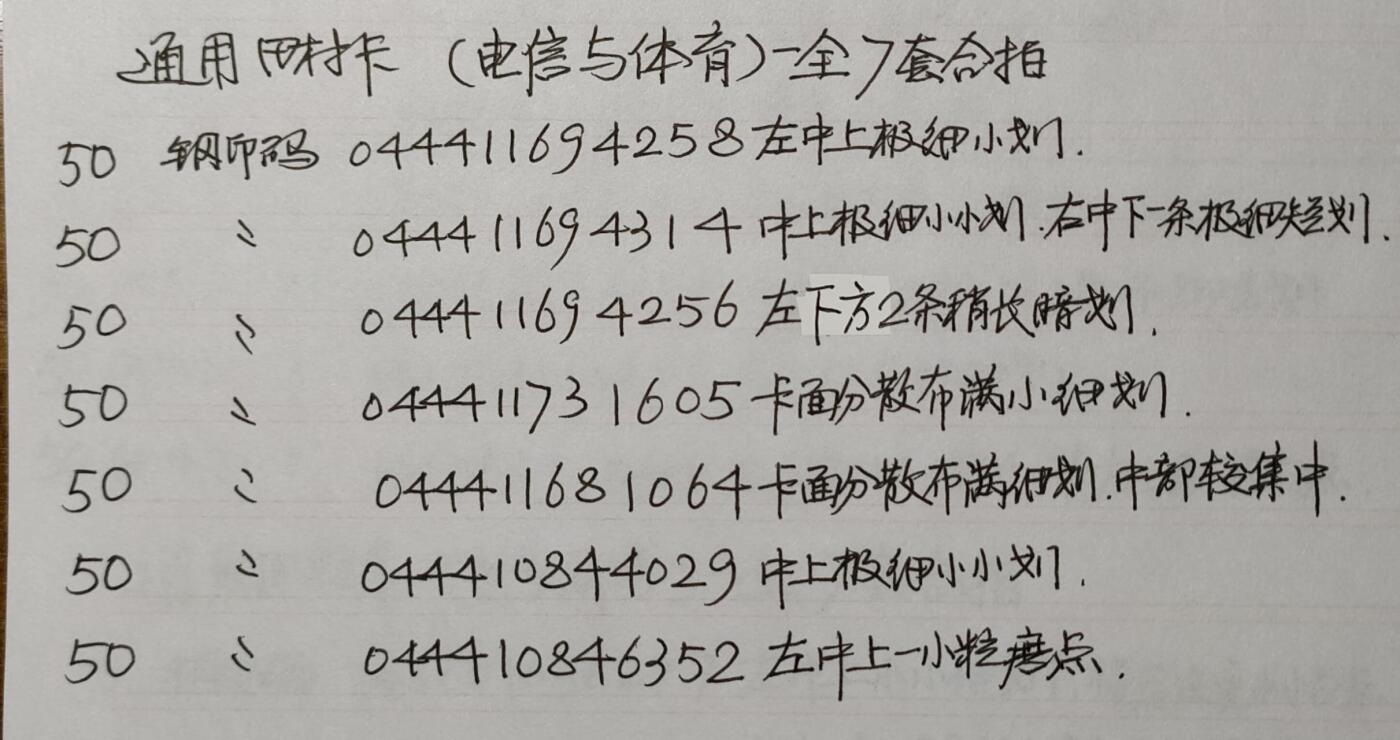 通用田村卡 (电信与体育)一全7套合拍
50 钢印码 044411694258 左中上极细小划.
50 〃 044411694314 中上极细小小划.右中下一条极细短划.
50 〃 044411694256 左下方2条稍长暗划.
50 〃 044411731605 卡面分散布满小细划.
50 〃 044411681064 卡面分散布满细划.中部较集中.
50 〃 044410844029 中上极细小小划.
50 〃 044410846352 左中上一小粒磨点.